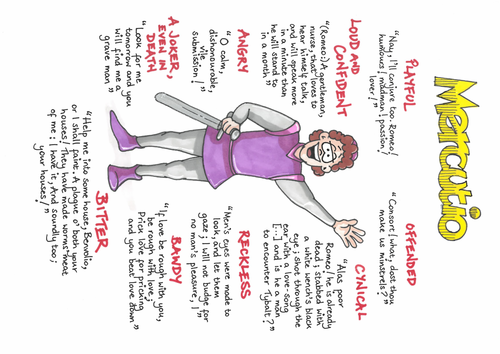 Mercutio
PLAYFUL
"Nay, I'll conjure too. Romeo!
humours! madman! passion!
lover!"
OFFENDED
"Consort! what, dost thou
make us minstrels?"
LOUD AND
CONFIDENT
"(Romeo:) A gentleman,
nurse, that loves to
hear himself talk,
and will speak more
in a minute than
he will stand to
in a month"
CYNICAL
"Alas poor
Romeo! he is already
dead; stabbed with
a white wench's black
eye; shot through the
ear with a love-song
[...] and is he a man
to encounter Tybalt?"
ANGRY
"O calm,
dishonourable,
vile
submission!"
RECKLESS
"Men's eyes were made to
look, and let them
gaze; I will not budge for
no man's pleasure, I"
A JOKER,
EVEN IN
DEATH
"Look for me
tomorrow and you
will find me a
grave man"
BAWDY
"If love be rough with you,
be rough with love;
Prick love for pricking
and you beat love down"
BITTER
"Help me into some house, Benvolio,
or I shall faint. A plague o' both your
houses! They have made worms' meat
of me: I have it, And soundly too:
your houses!"